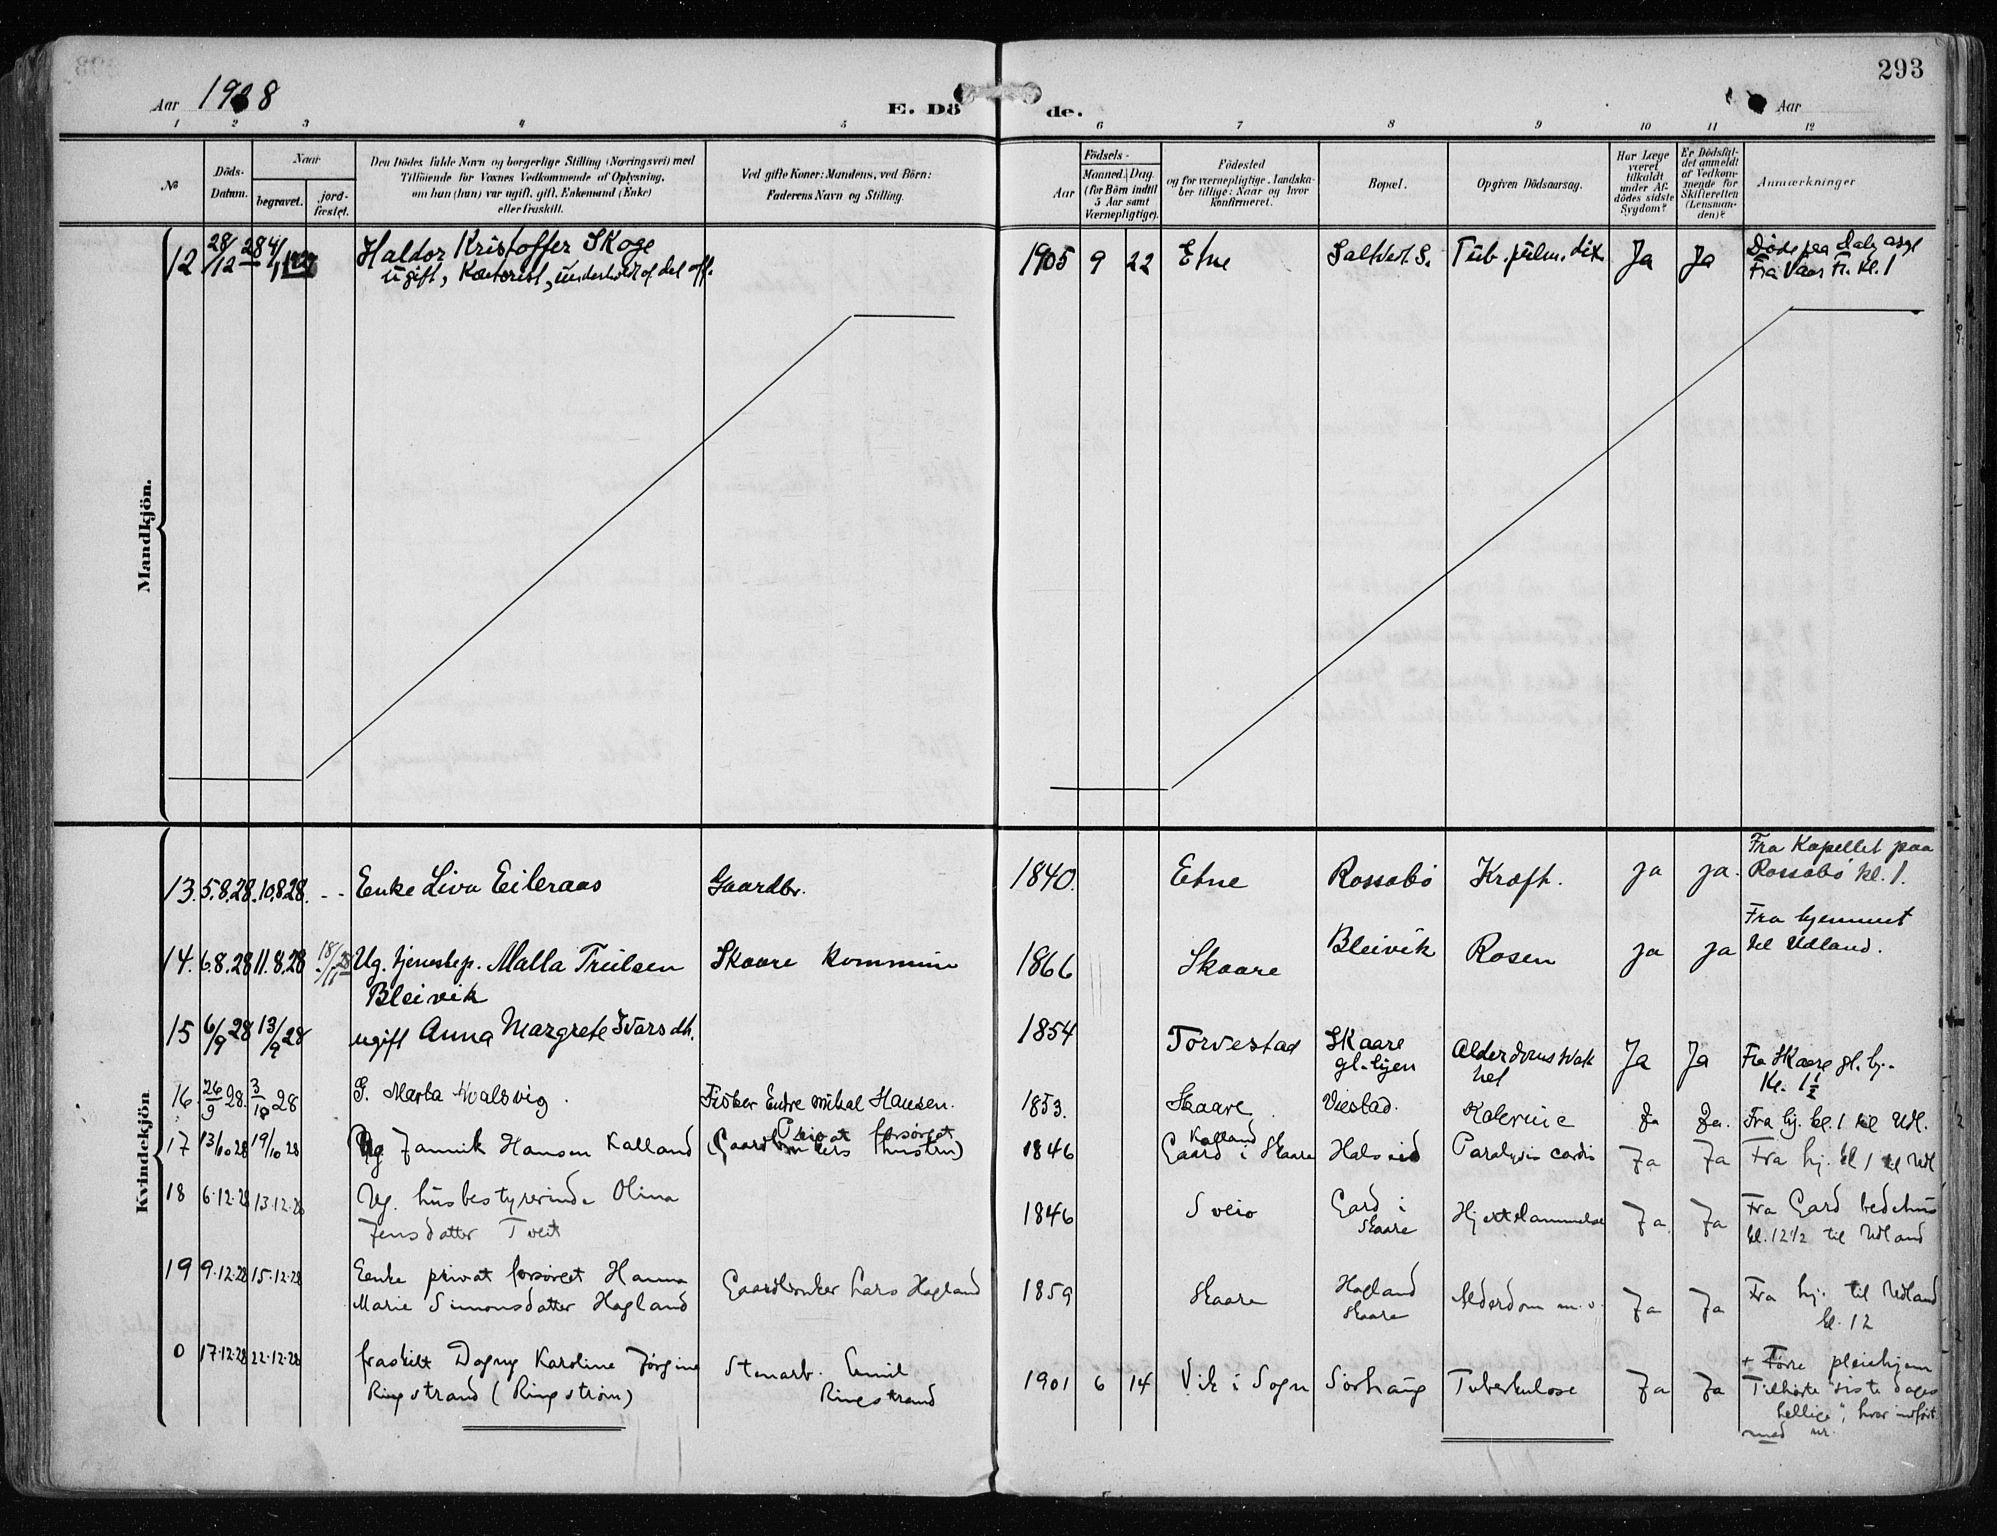 293
Aar 1928
E. Dö de.
Aar
1 2 3 4 5 6 7 8 9 10 11 12
No
Döds-Datum.
Naar
begravet.
jord-fæstet.
Den Dödes fulde Navn og borgerlige Stilling (Næringsvei) med
Tilföiende for Voxnes Vedkommende af Oplysning,
om hun (han) var ugift, gift, Enkemand (Enke)
eller fraskilt.
Ved gifte Koner: Mandens, ved Börn:
Faderens Navn og Stilling.
Födsels-
Aar
Maaned. Dag.
(for Börn indtil
5 Aar samt
Værnepligtige).
Födested
og for værnepligtige Landska-
ber tillige: Naar og hvor
konfirmeret.
Bopæl.
Opgiven Dödsaarsag.
Har Læge
været
tilkaldt
under Af-
dödes sidste
Sygdom?
Er Dödsfal-
det anmeldt
af Vedkom-
mende for
Skifteretten
(Lensman-
den)?
Anmærkninger
Mandkjön.
12 28/12 28 4/1 Haldor Kristoffer Skoge 1905 9 22 Etne Saltvet. S. Tub. pulm. Ja Ja Döde paa
ugift, underholdt af det off. Fra Vaar Fr. kl. 1
Kvindekjön
13. 5.8.28. 10.8.28. - - Enke Liva Eileraas Gaardbr. 1840. Etne Rossabö Kræft. ja ja. Fra Kapellet paa
Rossabö kl. 1.
14. 6.8.28 11.8.28 Ug. tjenestep. Malla Trulsen Skaare kommune 1866 Skaare Bleivik Rosen ja ja Fra hjemmet
Bleivik til Udland.
15 6/9 28 13/9 28 ugift Anna Margrete Ivarsdt. 1854 Torvestad Skaare
gl. hjen Ja Ja Fra Skaare gl. hj.
Kl. 1 1/2
16 26/9 28. 3/10 28 G. Marta Valsvig. Fisker Endre Mikal Hansen. 1853. Skaare Viestad. Ja Ja. Fra hj. kl. 1 til Udl.
17 13/10 28 19/10 28 Ug Jannik Hansen Kalland Privat forsörget
(Gaardbrukers hustru) 1846 Kalland
Gaard i Skaare Halseid Paralysis cordis Ja Ja Fra hj. kl 1 til Udl
18 6-12-28 13-12-28 Ug. husbestyrerinde Olina
Jensdatter Tveit 1846 Sveio Gard i
Skaare Hjertelammelse Ja Ja Fra Gard bedehus
kl. 12 1/2 til Udland
19 9-12-28 15-12-28 Enke privat forsörget Hanna
Marie Simonsdatter Hagland Gaardbruker Lars Hagland 1859 Skaare Hagland
Skaare Alderdom m. v. Ja Ja Fra hj. til Udland
kl. 12
0 17-12-28 22-12-28 fraskilt Dagny Karoline Jørgine
Ringstrand (Ringstrøm) Stenarb. Emil
Ringstrand 1901 6 14 Vik i Sogn Sörhaug Tuberkulose Ja Ja + Förre pleiehjem
Tilhörte "siste dages
hellige", hvor indfört
med nr.